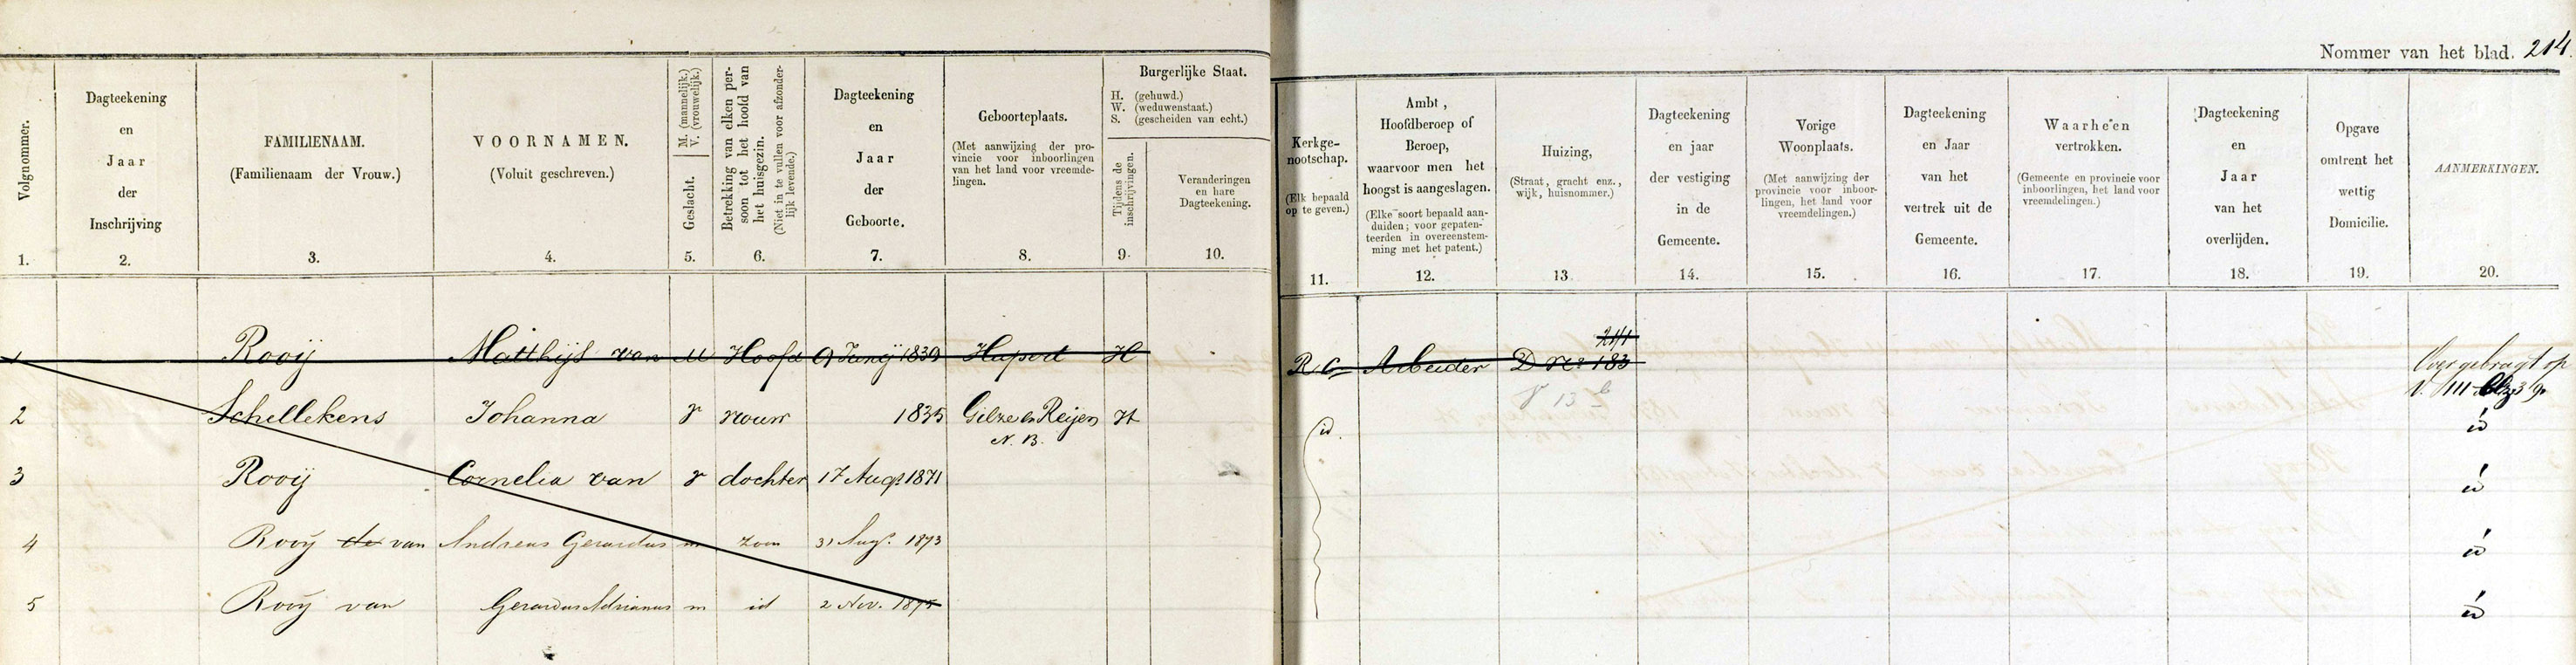 Nommer van het blad. 214.
Volgnommer.
1.
Dagteekening
en
Jaar
der
Inschrijving
2.
FAMILIENAAM.
(Familienaam der Vrouw.)
3.
VOORNAMEN.
(Voluit geschreven.)
4.
Geslacht. M. (mannelijk.) V. (vrouwelijk.)
5.
Betrekking van elken per-
soon tot het hoofd van
het huisgezin.
(Niet in te vullen voor afzonder-
lijk levende.)
6.
Dagteekening
en
Jaar
der
Geboorte.
7.
Geboorteplaats.
(Met aanwijzing der pro-
vincie voor inboorlingen
van het land voor vreemde-
lingen.)
8.
Burgerlijke Staat.
H. (gehuwd.)
W. (weduwenstaat.)
S. (gescheiden van echt.)
Tijdens de
inschrijvingen.
9.
Veranderingen
en hare
Dagteekening.
10.
Kerkge-
nootschap.
(Elk bepaald
op te geven.)
11.
Ambt,
Hoofdberoep of
Beroep,
waarvoor men het
hoogst is aangeslagen.
(Elke soort bepaald aan-
duiden; voor gepaten-
teerden in overeenstem-
ming met het patent.)
12.
Huizing,
(Straat, gracht enz.,
wijk, huisnommer.)
13.
Dagteekening
en jaar
der vestiging
in de
Gemeente.
14.
Vorige
Woonplaats.
(Met aanwijzing der
provincie voor inboor-
lingen, het land voor
vreemdelingen.)
15.
Dagteekening
en Jaar
van het
vertrek uit de
Gemeente.
16.
Waarheen
vertrokken.
(Gemeente en provincie voor
inboorlingen, het land voor
vreemdelingen.)
17.
Dagteekening
en
Jaar
van het
overlijden.
18.
Opgave
omtrent het
wettig
Domicilie.
19.
AANMERKINGEN.
20.
1 Rooij Matthijs van M Hoofd 9 Junij 1839 H R C Arbeider D No 183 Overgebragt op
2 Schellekens Johanna v vrouw 1835 Gilze en Reijen H id.
N. B.
3 Rooij Cornelia van v dochter 17 Augt 1871 id
4 Rooij de van Andreas Gerardus m zoon 31 Aug. 1873 id
5 Rooij van Gerardus Adrianus m id 2 Nov. 1875 id